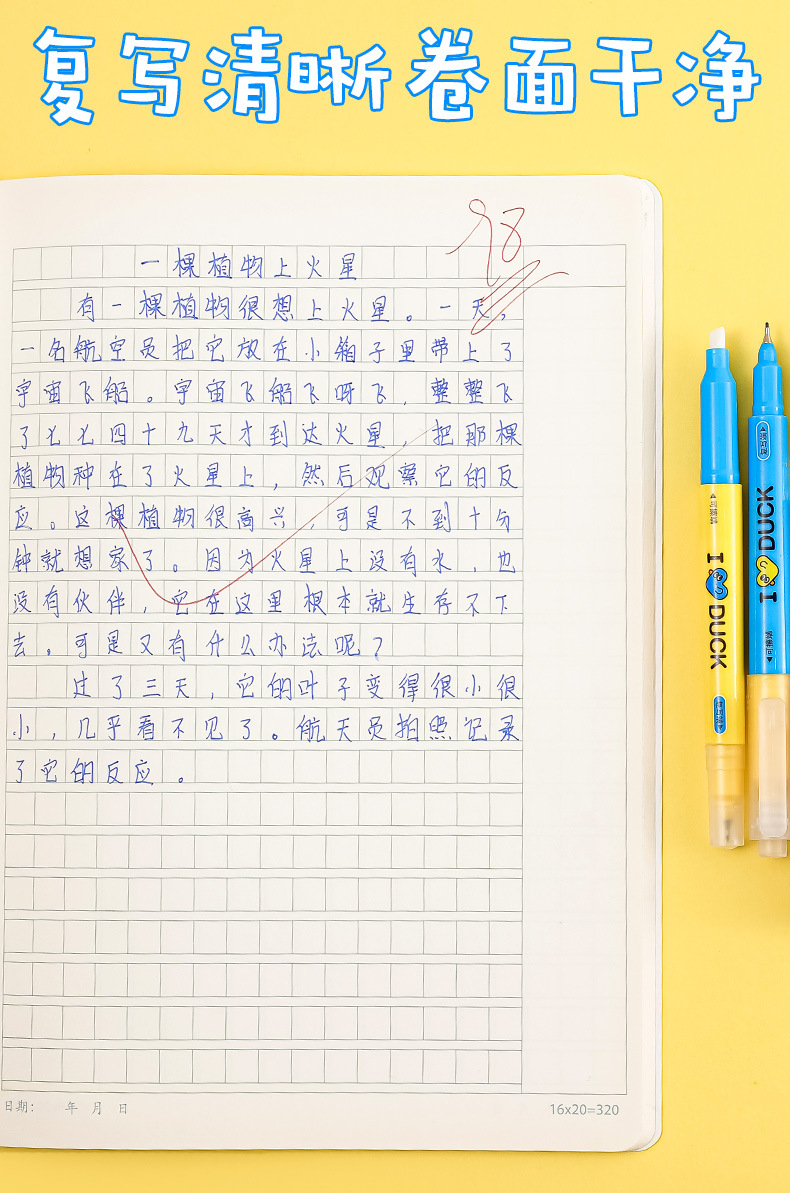 复写清晰卷面干净
98
一棵植物上火星
有一棵植物很想上火星。一天，
一名航空员把它放在小箱子里带上了
宇宙飞船。宇宙飞船飞呀飞，整整飞
了七七四十九天才到达火星，把那棵
植物种在了火星上，然后观察它的反
应。这棵植物很高兴，可是不到十分
钟就想家了。因为火星上没有水，也
没有伙伴，它在这里根本就生存不下
去。可是又有什么办法呢？
过了三天，它的叶子变得很小很
小，几乎看不见了。航天员拍照记录
了它的反应。
日期： 年 月 日
16x20=320
I DUCK
I DUCK